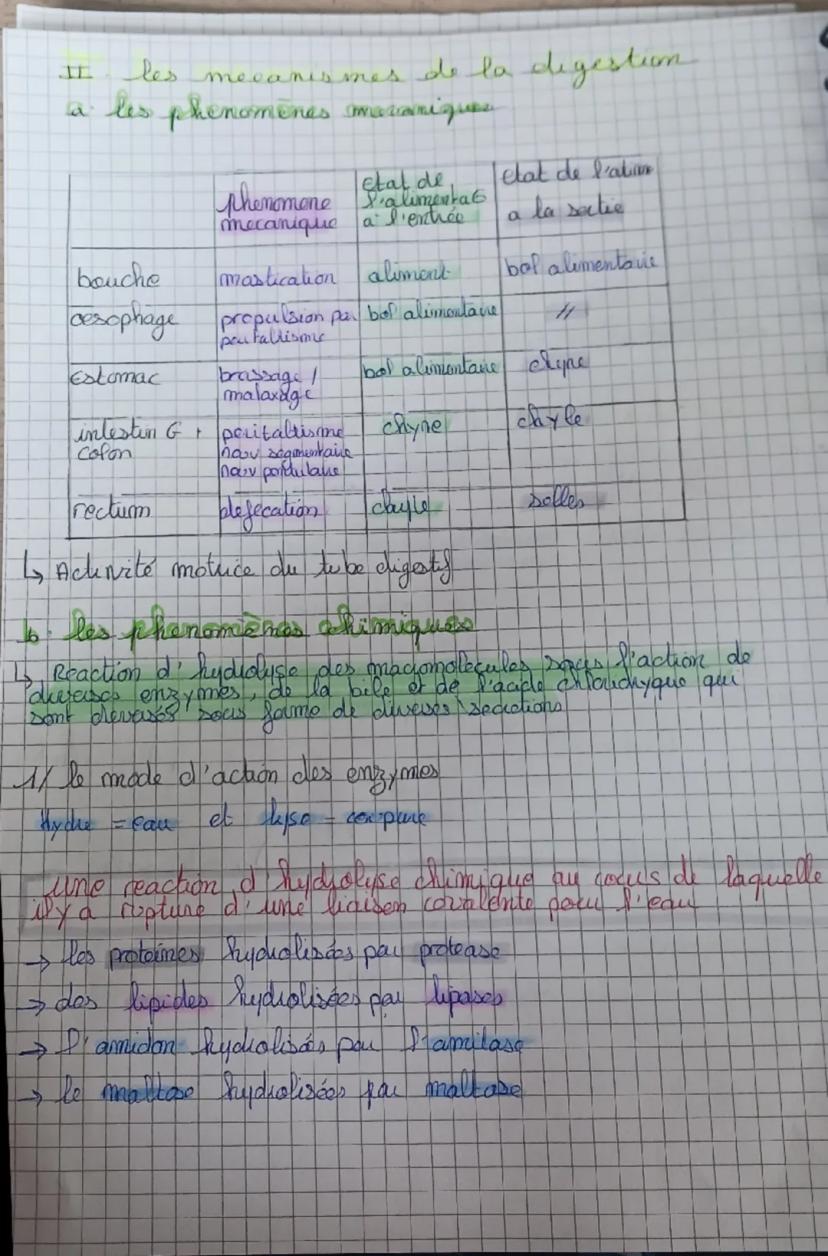 II les mecanismes de la digestion
a. les phenomènes mecaniques
phenomene mecanique
etat de l'alimentat a l'entrée
etat de l'alim a la sortie
bouche mastication aliment bol alimentaire
oesophage propulsion par peritaltisme bol alimentaire //
Estomac brassage / malaxage bol alimentaire chyne
intestin G + colon peritaltisme segmentaire chyne chyle
rectum defecation chyle selles
↳ Activité motrice du tube digestif
b. les phenomènes chimiques
↳ Reaction d'hydrolyse des macromolecules sous l'action de
diverses enzymes, de la bile et de l'acide qui
sont sous forme de diverses secretions
1/ le mode d'action des enzymes
Hydro = eau et lyse = coupure
une reaction d'hydrolyse chimique au cours de laquelle
il y a rupture d'une liaison covalente pour l'eau
→ les proteines hydrolisées par protease
→ des lipides hydrolisées par lipases
→ l'amidon hydrolisés par l'amilase
→ le maltose hydrolisées par maltase